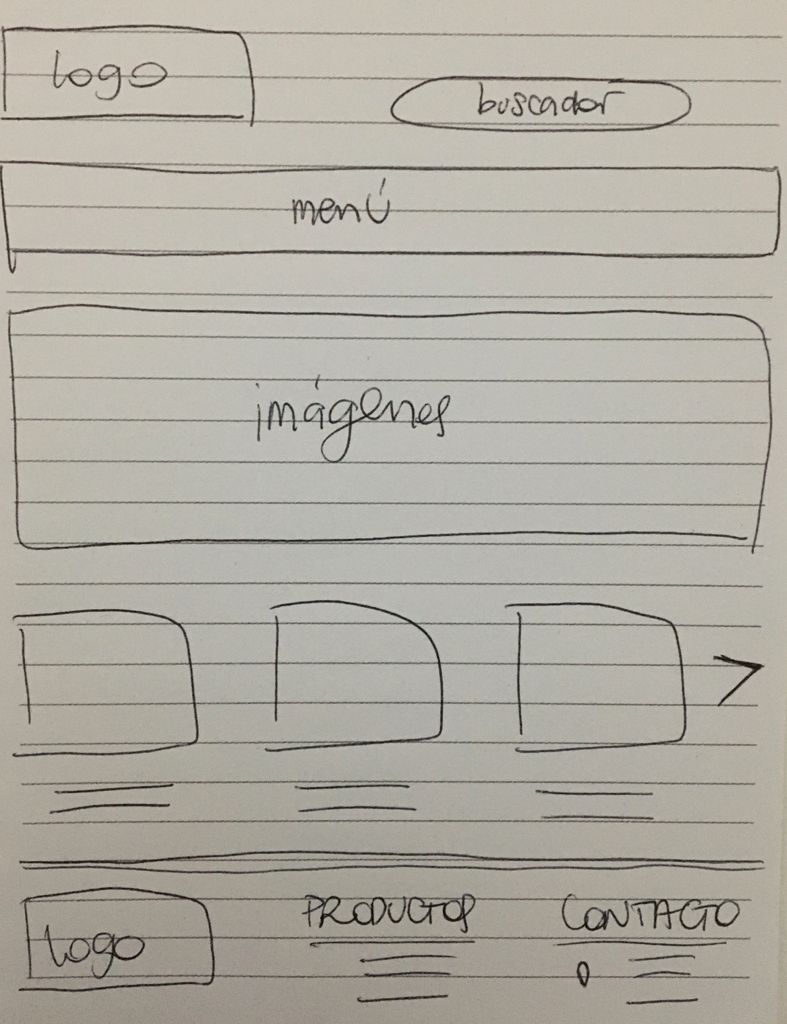 logo
buscador
menú
imágenes
logo
PRODUCTOS
CONTACTO